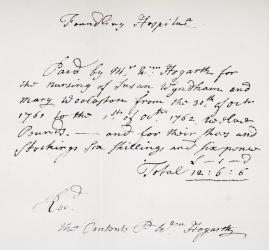 Foundling Hospital
Paid by Mr. Wm. Hogarth for
the nursing of Susan Wyndham and
mary Woolaston from the 30th. of octr.
1761 to the 1st. of octr. 1762. twelve
Pounds. — and for their shoes and
Stockings Six Shillings and six pence
£ - s - d
Total 12 : 6 : 6
Recd.
the Contents P Wm. Hogarth